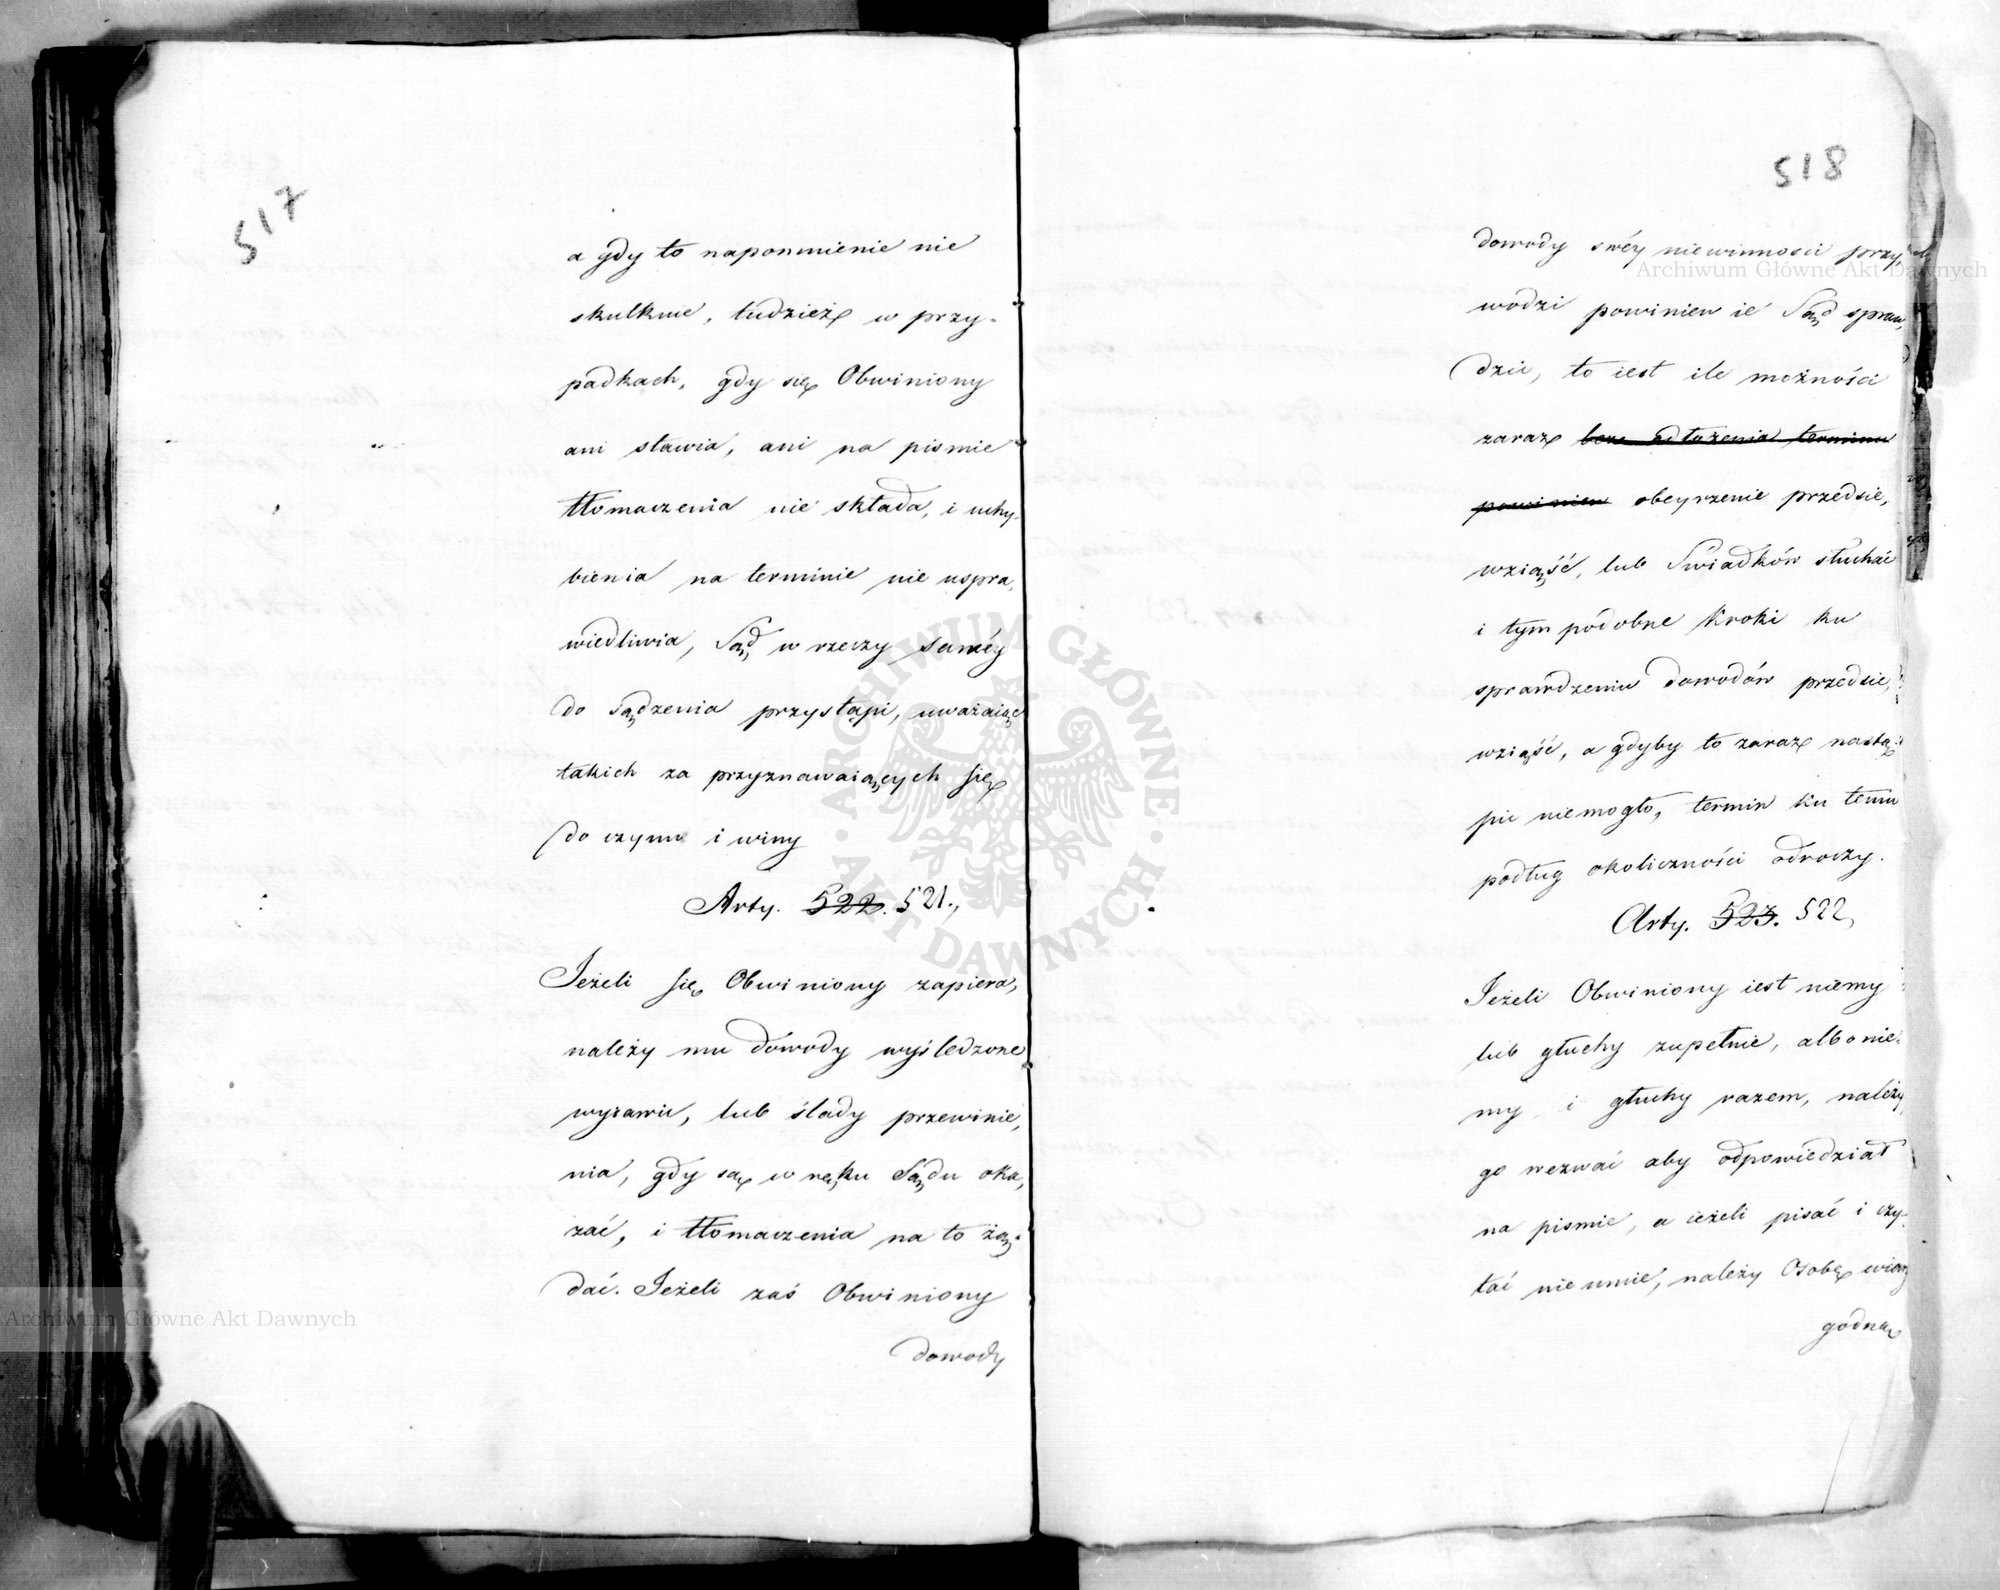 517
a gdy to napomnienie nie
skutkuie, tudzież w przy-
padkach, gdy się Obwiniony
ani stawia, ani na pismie
tłomaczenia nie składa, i uchy-
bienia na terminie nie uspra,
wiedliwia, Sąd w rzeczy saméy
do sądzenia przystąpi, uważaiąc
takich za przyznawaiących się
do czynu i winy
Arty. 522. 521.,
Jeżeli się Obwiniony zapiera,
należy mu dowody wyśledzone
wyiawić, lub ślady przewinie,
nia, gdy są w ręku Sądu oka,
zać, i tłomaczenia na to żą-
dać. Jeżeli zaś Obwiniony
dowody
518
dowody swéy niewinnosci przy,
wodzi powinien ie Sąd spraw,
dzić, to iest ile możności
zaraz bez odłożenia terminu
powinien obeyrzenie przedsie,
wziąść, lub Swiadków słuchać
i tym podobne kroki ku
sprawdzeniu dowodów przedsie,
wziąść, a gdyby to zaraz nastą-
pić niemogło, termin ku temu
podług okoliczności odroczy.
Arty. 523. 522,
Jeżeli Obwiniony iest niemy
lub głuchy zupełnie, albo nie-
my i głuchy razem, należy
go wezwać aby odpowiedział
na pismie, a ieżeli pisać i czy-
tać nie umie, należy Osobę wiary
godną
Archiwum Główne Akt Dawnych
Archiwum Główne Akt Dawnych
ARCHIWUM GŁÓWNE · AKT DAWNYCH ·